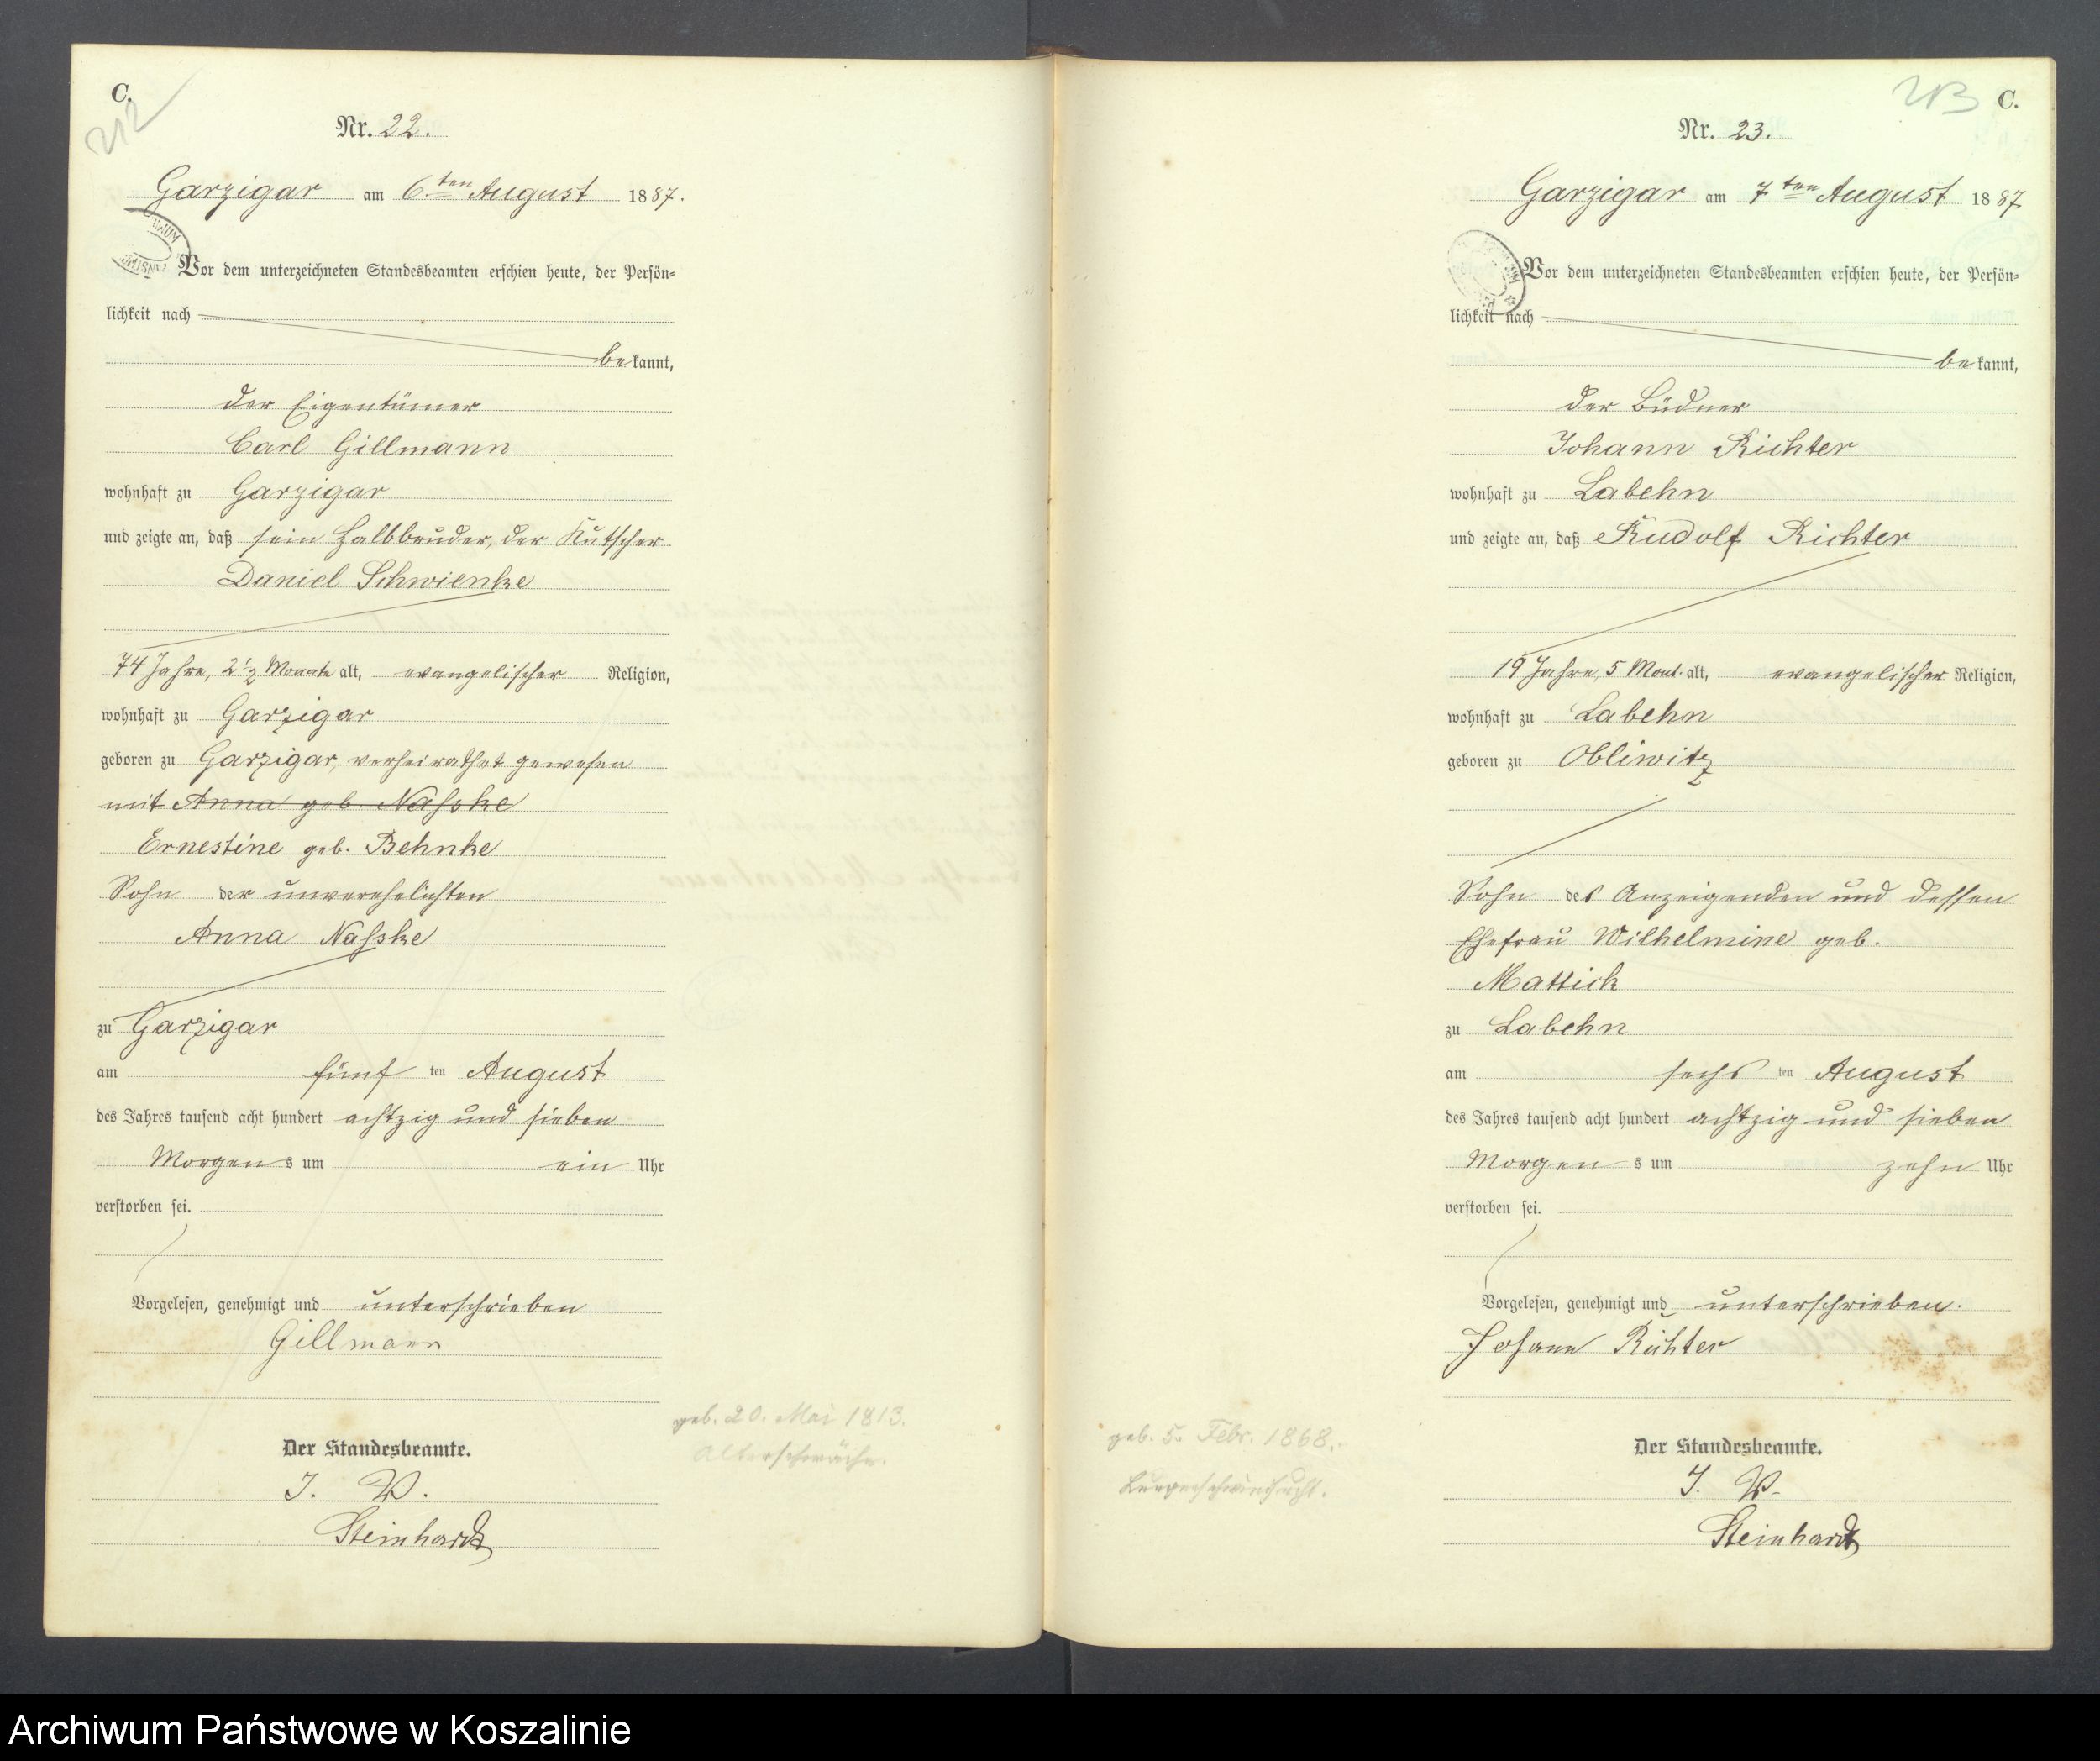 C.
212
Nr. 22.
Garzigar am 6.ten August 1887.
Vor dem unterzeichneten Standesbeamten erschien heute, der Persön-
lichkeit nach
bekannt,
der Eigentümer
Carl Gillmann
wohnhaft zu Garzigar
und zeigte an, daß sein Halbbruder, der Kutscher
Daniel Schwienke
74 Jahre, 2 1/2 Monate alt, evangelischer Religion,
wohnhaft zu Garzigar
geboren zu Garzigar, verheirathet gewesen
mit Anna geb. Naßke
Ernestine geb. Behnke
Sohn der unverehelichten
Anna Naßke
zu Garzigar
am fünf ten August
des Jahres tausend acht hundert achtzig und sieben
Morgens um ein Uhr
verstorben sei.
Vorgelesen, genehmigt und unterschrieben
Gillmann
geb. 20. Mai 1813.
Altersschwäche.
Der Standesbeamte.
I. V.
Steinhardt
213
C.
Nr. 23.
Garzigar am 7ten August 1887
Vor dem unterzeichneten Standesbeamten erschien heute, der Persön-
lichkeit nach
bekannt,
der Büdner
Johann Richter
wohnhaft zu Labehn
und zeigte an, daß Rudolf Richter
19 Jahre, 5 Mont. alt, evangelischer Religion,
wohnhaft zu Labehn
geboren zu Obliwitz
Sohn des Anzeigenden und dessen
Ehefrau Wilhelmine geb.
Mattick
zu Labehn
am sechs ten August
des Jahres tausend acht hundert achtzig und sieben
Morgens um zehn Uhr
verstorben sei.
Vorgelesen, genehmigt und unterschrieben.
Johann Richter
geb. 5. Febr. 1868.
Lungenschwindsucht.
Der Standesbeamte.
I. V.
Steinhardt
Archiwum Państwowe w Koszalinie